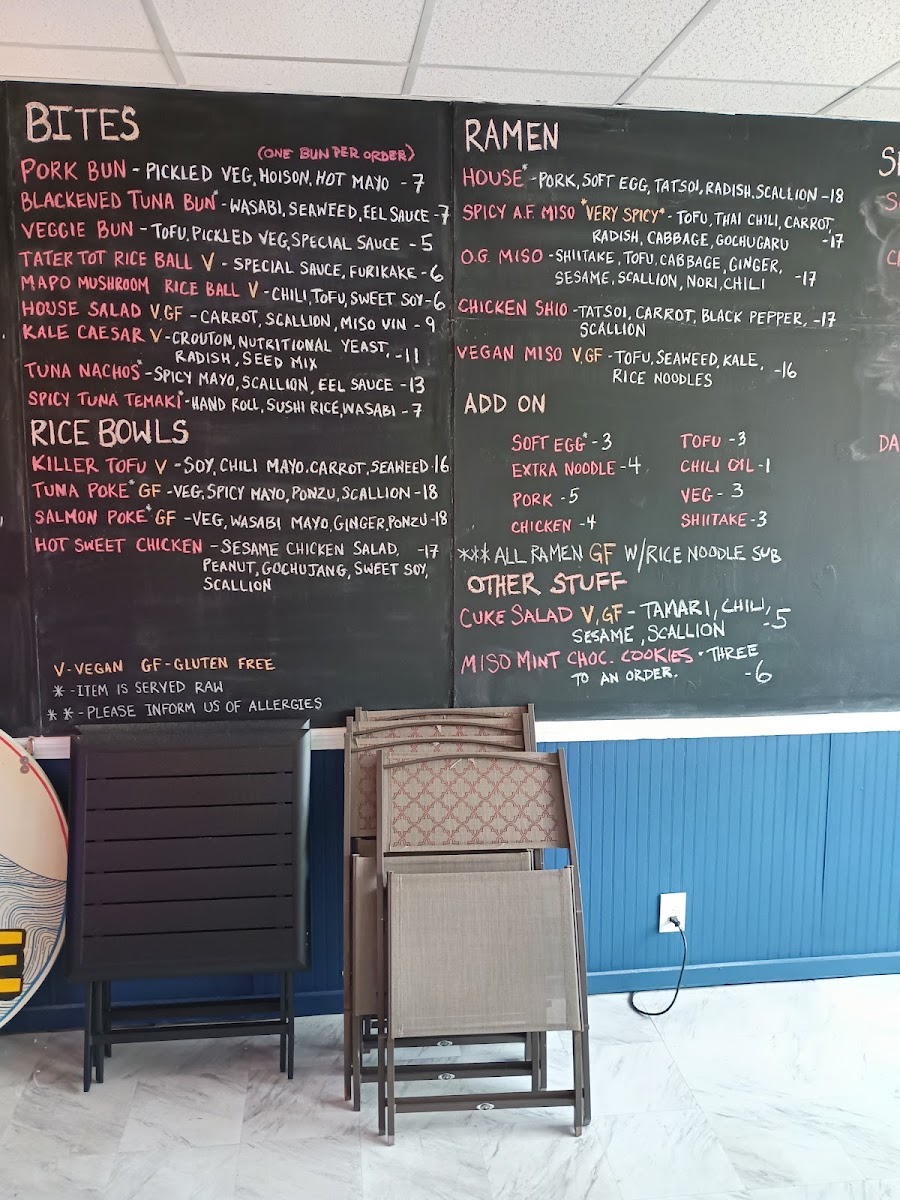 BITES
(ONE BUN PER ORDER)
PORK BUN - PICKLED VEG, HOISON, HOT MAYO - 7
BLACKENED TUNA BUN* - WASABI, SEAWEED, EEL SAUCE - 7
VEGGIE BUN - TOFU, PICKLED VEG, SPECIAL SAUCE - 5
TATER TOT RICE BALL V - SPECIAL SAUCE, FURIKAKE - 6
MAPO MUSHROOM RICE BALL V - CHILI, TOFU, SWEET SOY - 6
HOUSE SALAD V, GF - CARROT, SCALLION, MISO VIN - 9
KALE CAESAR V - CROUTON, NUTRITIONAL YEAST,
RADISH, SEED MIX - 11
TUNA NACHOS* - SPICY MAYO, SCALLION, EEL SAUCE - 13
SPICY TUNA TEMAKI* - HAND ROLL, SUSHI RICE, WASABI - 7
RICE BOWLS
KILLER TOFU V - SOY, CHILI MAYO. CARROT, SEAWEED - 16
TUNA POKE* GF - VEG, SPICY MAYO, PONZU, SCALLION - 18
SALMON POKE* GF - VEG, WASABI MAYO, GINGER, PONZU - 18
HOT SWEET CHICKEN - SESAME CHICKEN SALAD, - 17
PEANUT, GOCHUJANG, SWEET SOY,
SCALLION
V - VEGAN GF - GLUTEN FREE
* - ITEM IS SERVED RAW
** - PLEASE INFORM US OF ALLERGIES
RAMEN
HOUSE* - PORK, SOFT EGG, TATSOI, RADISH, SCALLION - 18
SPICY A.F. MISO *VERY SPICY* - TOFU, THAI CHILI, CARROT,
RADISH, CABBAGE, GOCHUGARU - 17
O.G. MISO - SHIITAKE, TOFU, CABBAGE, GINGER,
SESAME, SCALLION, NORI, CHILI - 17
CHICKEN SHIO - TATSOI, CARROT, BLACK PEPPER, - 17
SCALLION
VEGAN MISO V, GF - TOFU, SEAWEED, KALE,
RICE NOODLES - 16
ADD ON
SOFT EGG* - 3 TOFU - 3
EXTRA NOODLE - 4 CHILI OIL - 1
PORK - 5 VEG - 3
CHICKEN - 4 SHIITAKE - 3
*** ALL RAMEN GF W/RICE NOODLE SUB
OTHER STUFF
CUKE SALAD V, GF - TAMARI, CHILI,
SESAME, SCALLION - 5
MISO MINT CHOC. COOKIES - THREE
TO AN ORDER. - 6
DA
E